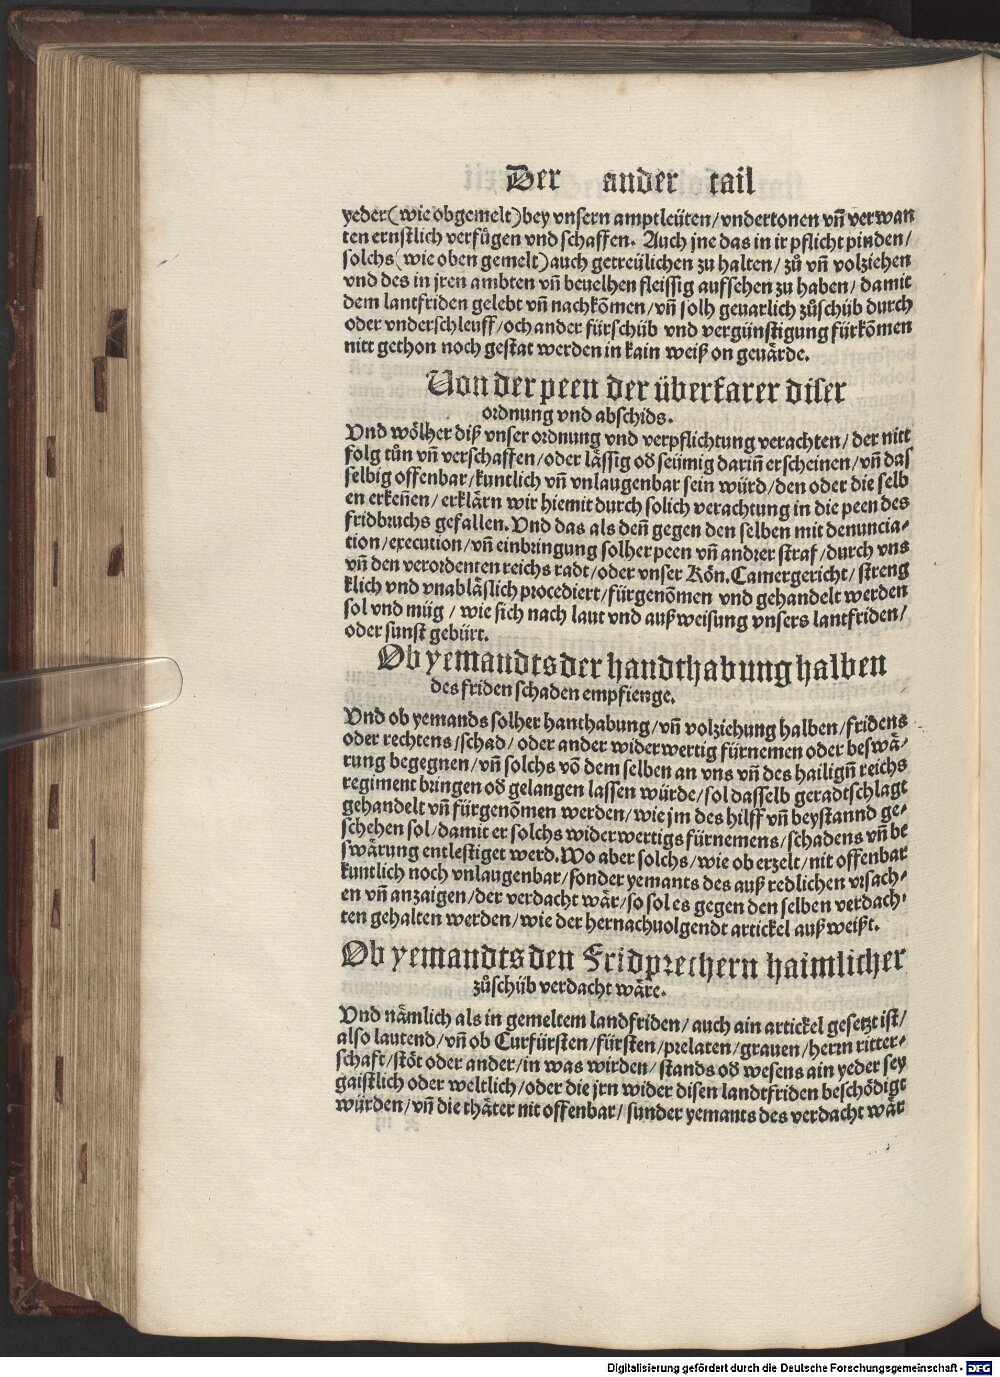 Der ander tail
yeder(wie obgemelt)bey vnsern amptleüten/vndertonen vñ verwan
ten ernstlich verfügen vnd schaffen. Auch jne das in ir pflicht pinden/
solchs(wie oben gemelt)auch getreülichen zu halten/zů vñ volziehen
vnd des in jren ambten vñ beuelhen fleissig aufsehen zu haben/damit
dem lantfriden gelebt vñ nachkõmen/vñ solh geuarlich zůschüb durch
oder vnderschleuff/och ander fürschüb vnd vergünstigung fürkõmen
nitt gethon noch gestat werden in kain weiß on geuärde.
Von der peen der überfarer diser
ordnung vnd abschids.
Vnd wölher diß vnser ordnung vnd verpflichtung verachten/der nitt
folg tůn vñ verschaffen/oder lässig oď seümig dariñ erscheinen/vñ das
selbig offenbar/kuntlich vñ vnlaugenbar sein würd/den oder die selb
en erkeñen/erklärn wir hiemit durch solich verachtung in die peen des
fridbruchs gefallen. Vnd das als deñ gegen den selben mit denuncia-
tion/execution/vñ einbringung solher peen vñ andrer straf/durch vns
vñ den verordenten reichs radt/oder vnser Kön. Camergericht/streng
klich vnd vnabläslich procediert/fürgenõmen vnd gehandelt werden
sol vnd müg/wie sich nach laut vnd außweisung vnsers lantfriden/
oder sunst gebürt.
Ob yemandts der handthabung halben
des friden schaden empfienge.
Vnd ob yemands solher hanthabung/vñ volziehung halben/fridens
oder rechtens/schad/oder ander widerwertig fürnemen oder beswä-
rung begegnen/vñ solchs võ dem selben an vns vñ des hailigñ reichs
regiment bringen oď gelangen lassen würde/sol dasselb geradtschlagt
gehandelt vñ fürgenõmen werden/wie jm des hilff vñ beystannd ge-
schehen sol/damit er solchs widerwertigs fürnemens/schadens vñ be
swärung entlestiget werd. Wo aber solchs/wie ob erzelt/nit offenbar
kuntlich noch vnlaugenbar/sonder yemants des auß redlichen vrsach-
en vñ anzaigen/der verdacht wär/so sol es gegen den selben verdach-
ten gehalten werden/wie der hernachuolgendt artickel auß weißt.
Ob yemandts den Fridprechern haimlicher
zůschüb verdacht wäre.
Vnd nämlich als in gemeltem landfriden/auch ain artickel gesetzt ist/
also lautend/vñ ob Curfürsten/fürsten/prelaten/grauen/herrn ritter-
schaft/stöt oder ander/in was wirden/stands oď wesens ain yeder sey
gaistlich oder weltlich/oder die jrn wider disen landtfriden beschödigt
würden/vñ die thäter nit offenbar/sunder yemants des verdacht wär
Digitalisierung gefördert durch die Deutsche Forschungsgemeinschaft - DFG